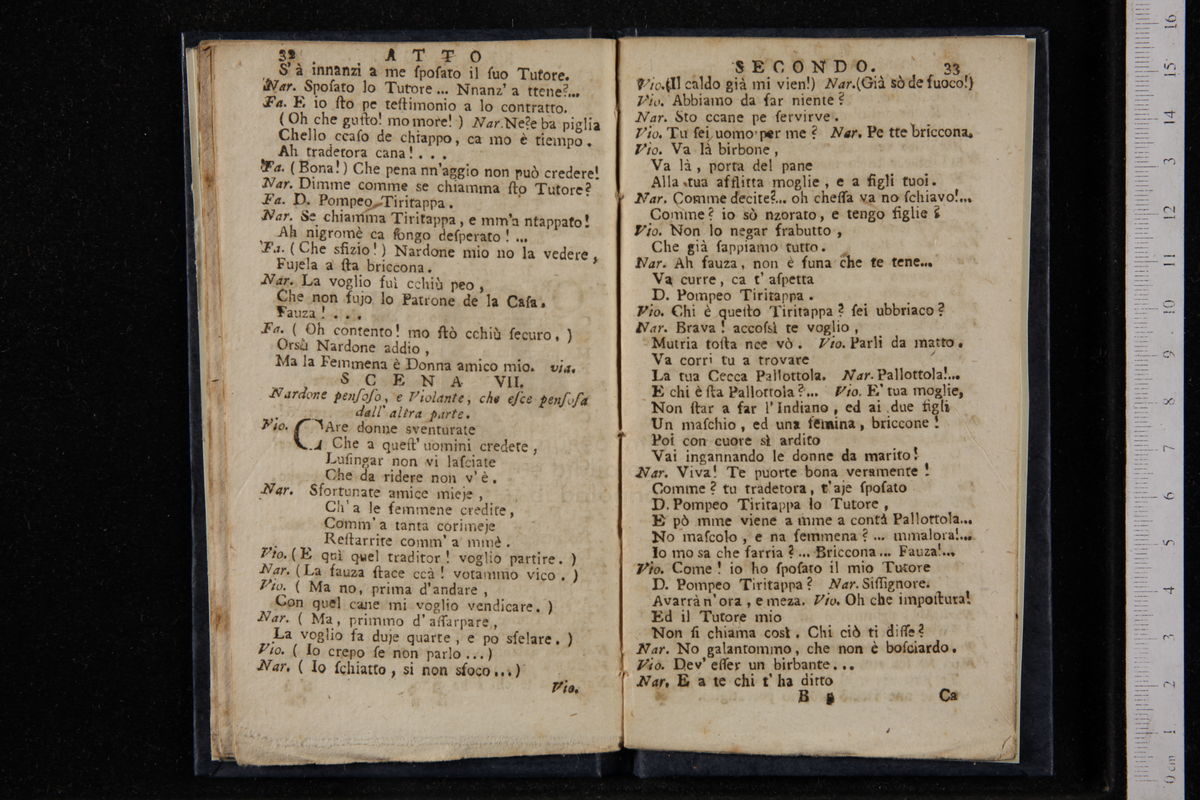 32 ATTO
S'à innanzi a me ſpoſato il ſuo Tutore.
Nar. Spoſato lo Tutore... Nnanz' a ttene?...
Fa. E io ſto pe teſtimonio a lo contratto.
(Oh che guſto! mo more!) Nar. Ne?e ba piglia
Chello ccaſo de chiappo, ca mo è tiempo.
Ah tradetora cana!...
Fa. (Bona!) Che pena nn'aggio non può credere!
Nar. Dimme comme se chiamma ſto Tutore?
Fa. D. Pompeo Tiritappa.
Nar. Se chiamma Tiritappa, e mm'a ntappato!
Ah nigromè ca ſongo deſperato! ...
Fa. (Che sfizio!) Nardone mio no la vedere,
Fujela a ſta briccona.
Nar. La voglio fuì cchiù peo,
Che non fujo lo Patrone de la Caſa.
Fauza! ...
Fa. ( Oh contento! mo ſtò cchiù ſecuro. )
Orsù Nardone addio,
Ma la Femmena è Donna amico mio. via.
SCENA VII.
Nardone penſoſo, e Violante, che eſce penſoſa
dall' altra parte.
Vio. CAre donne sventurate
Che a queſt' uomini credete,
Luſingar non vi laſciate
Che da ridere non v'è.
Nar. Sfortunate amice mieje,
Ch'a le femmene credite,
Comm'a tanta corimeje
Reſtarrite comm'a mmè.
Vio. (E quì quel traditor! voglio partire. )
Nar. (La fauza ſtace ccà! votammo vico. )
Vio. ( Ma no, prima d'andare,
Con quel cane mi voglio vendicare. )
Nar. ( Ma, primmo d'affarpare,
La voglio fa duje quarte, e po sfelare. )
Vio. ( Io crepo ſe non parlo...)
Nar. ( Io ſchiatto, si non sfoco...)
Vio.
SECONDO. 33
Vio.(Il caldo già mi vien!) Nar.(Già sò de fuoco!)
Vio. Abbiamo da far niente?
Nar. Sto ccane pe ſervirve.
Vio. Tu ſei uomo per me? Nar. Pe tte briccona.
Vio. Va là birbone,
Va là, porta del pane
Alla tua afflitta moglie, e a figli tuoi.
Nar. Comme decite?... oh cheſſa va no ſchiavo!...
Comme? io sò nzorato, e tengo figlie?
Vio. Non lo negar frabutto,
Che già ſappiamo tutto.
Nar. Ah fauza, non è funa che te tene...
Va curre, ca t'aſpetta
D. Pompeo Tiritappa.
Vio. Chi è queſto Tiritappa? ſei ubbriaco?
Nar. Brava! accoſsì te voglio,
Mutria toſta nce vò. Vio. Parli da matto.
Va corri tu a trovare
La tua Cecca Pallottola. Nar. Pallottola!...
E chi è ſta Pallottola?... Vio. E' tua moglie,
Non ſtar a far l'Indiano, ed ai due figli
Un maſchio, ed una femina, briccone!
Poi con cuore sì ardito
Vai ingannando le donne da marito!
Nar. Viva! Te puorte bona veramente!
Comme? tu tradetora, t'aje ſpoſato
D. Pompeo Tiritappa lo Tutore,
E pò mme viene a mme a contà Pallottola...
No maſcolo, e na femmena? ... mmalora!...
Io mo sa che farria? ... Briccona... Fauza!...
Vio. Come! io ho ſpoſato il mio Tutore
D. Pompeo Tiritappa? Nar. Siſſignore.
Avarrà n'ora, e meza. Vio. Oh che impoſtura!
Ed il Tutore mio
Non ſi chiama così. Chi ciò ti diſſe?
Nar. No galantommo, che non è boſciardo.
Vio. Dev'eſſer un birbante...
Nar. E a te chi t'ha ditto
B Ca